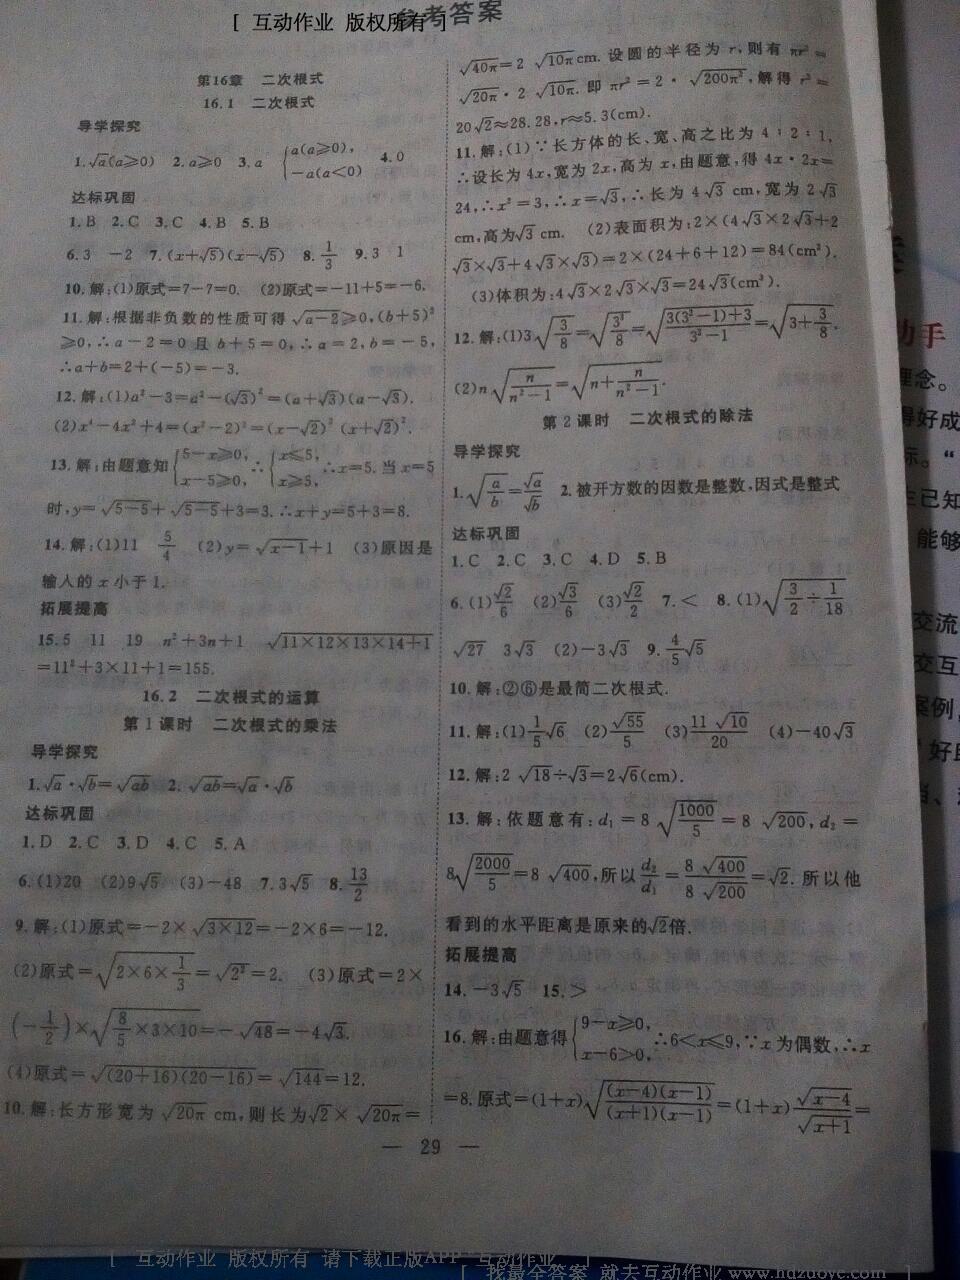 [ 互动作业 版权所有 ]
参考答案
第16章 二次根式
16.1 二次根式
导学探究
1.√a(a≥0) 2.a≥0 3.a {a(a≥0), −a(a<0) 4.0
达标巩固
1.B 2.C 3.C 4.B 5.B
6.3 −2 7.(x+√5)(x−√5) 8.1/3 9.3 1
10.解:(1)原式=7−7=0. (2)原式=−11+5=−6.
11.解:根据非负数的性质可得√(a−2)≥0,(b+5)²
≥0,∴a−2=0且b+5=0,∴a=2,b=−5,
∴a+b=2+(−5)=−3.
12.解:(1)a²−3=a²−(√3)²=(a+√3)(a−√3).
(2)x⁴−4x²+4=(x²−2)²=(x−√2)²(x+√2)².
13.解:由题意知{5−x≥0, x−5≥0, ∴{x≤5, x≥5, ∴x=5.当x=5
时,y=√(5−5)+√(5−5)+3=3.∴x+y=5+3=8.
14.解:(1)11 5/4 (2)y=√(x−1)+1 (3)原因是
输入的x小于1.
拓展提高
15.5 11 19 n²+3n+1 √(11×12×13×14+1)
=11²+3×11+1=155.
16.2 二次根式的运算
第1课时 二次根式的乘法
导学探究
1.√a·√b=√ab 2.√ab=√a·√b
达标巩固
1.D 2.C 3.D 4.C 5.A
6.(1)20 (2)9√5 (3)−48 7.3√5 8.13/2
9.解:(1)原式=−2×√(3×12)=−2×6=−12.
(2)原式=√(2×6×1/3)=√2²=2. (3)原式=2×
(−1/2)×√(8/5×3×10)=−√48=−4√3.
(4)原式=√((20+16)(20−16))=√144=12.
10.解:长方形宽为√20π cm,则长为√2×√20π=
√40π=2√10π cm.设圆的半径为r,则有πr²=
√20π·2√10π.即πr²=2·√200π²,解得r²=
20√2≈28.28,r≈5.3(cm).
11.解:(1)∵长方体的长、宽、高之比为4∶2∶1,
∴设长为4x,宽为2x,高为x,由题意,得4x·2x=
24,∴x²=3,∴x=√3,∴长为4√3 cm,宽为2√3
cm,高为√3 cm. (2)表面积为:2×(4√3×2√3+2
√3×√3+4√3×√3)=2×(24+6+12)=84(cm²).
(3)体积为:4√3×2√3×√3=24√3(cm³).
12.解:(1)3√(3/8)=√(3³/8)=√((3(3²−1)+3)/(3²−1))=√(3+3/8).
(2)n√(n/(n²−1))=√(n+n/(n²−1)).
第2课时 二次根式的除法
导学探究
1.√(a/b)=√a/√b 2.被开方数的因数是整数,因式是整式
达标巩固
1.C 2.C 3.C 4.D 5.B
6.(1)√2/6 (2)√3/6 (3)√2/2 7.< 8.(1)√(3/2÷1/18)
√27 3√3 (2)−3√3 9.4/5√5
10.解:②⑥是最简二次根式.
11.解:(1)1/5√6 (2)√55/5 (3)11√10/20 (4)−40√3
12.解:2√18÷√3=2√6(cm).
13.解:依题意有:d₁=8√(1000/5)=8√200,d₂=
8√(2000/5)=8√400,所以d₂/d₁=8√400/8√200=√2.所以他
看到的水平距离是原来的√2倍.
拓展提高
14.−3√5 15.>
16.解:由题意得{9−x≥0, x−6>0, ∴6<x≤9,∵x为偶数,∴x
=8.原式=(1+x)√((x−4)(x−1)/(x+1)(x−1))=(1+x)√(x−4)/√(x+1)=
— 29 —
助手
理念。
得好成
标。“
生已知
能够
交流
交互
案例,
好
[ 互动作业 版权所有 请下载正版APP-互动作业 ]
[ 找最全答案 就去互动作业 www.hdzuoye.com ]